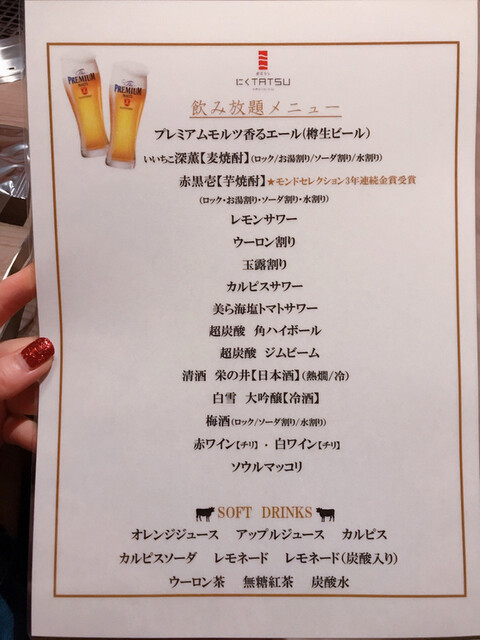 にくTATSU
飲み放題メニュー
PREMIUM
PREMIUM
プレミアムモルツ香るエール(樽生ビール)
いいちこ深薫【麦焼酎】(ロック/お湯割り/ソーダ割り/水割り)
赤黒壱【芋焼酎】★モンドセレクション3年連続金賞受賞
(ロック・お湯割り・ソーダ割り・水割り)
レモンサワー
ウーロン割り
玉露割り
カルピスサワー
美ら海塩トマトサワー
超炭酸 角ハイボール
超炭酸 ジムビーム
清酒 栄の井【日本酒】(熱燗/冷)
白雪 大吟醸【冷酒】
梅酒(ロック/ソーダ割り/水割り)
赤ワイン【チリ】・白ワイン【チリ】
ソウルマッコリ
SOFT DRINKS
オレンジジュース アップルジュース カルピス
カルピスソーダ レモネード レモネード(炭酸入り)
ウーロン茶 無糖紅茶 炭酸水